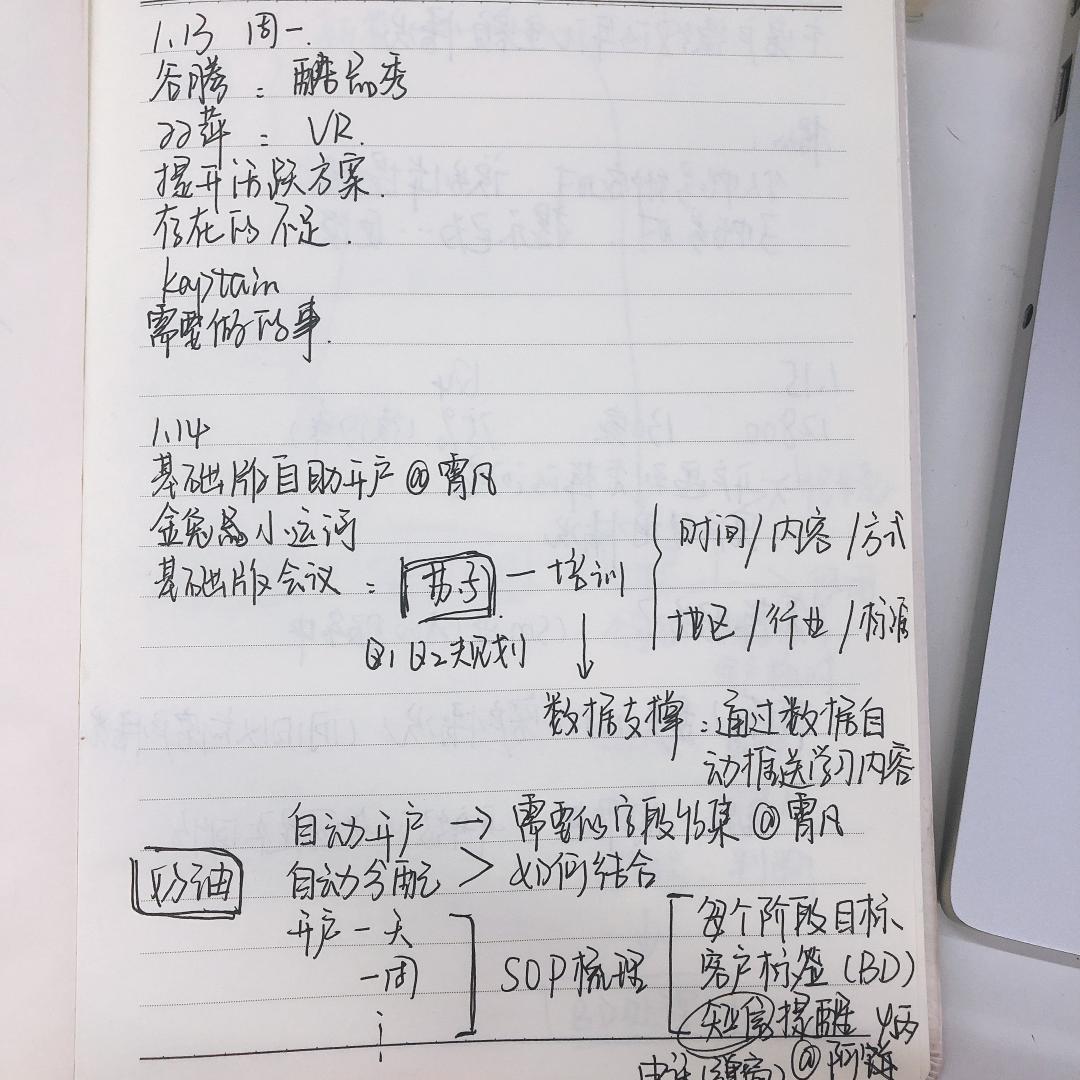 1.13 周一.
谷腾: 酷品秀
双萍: VR.
提升活跃方案.
存在的不足.
kaptain
需要做的事.
1.14
基础版自助开户 @霄凡
小运河
基础版会议: 一 培训
时间/内容/方式
地区/行业/标准
Q1 Q2规划
数据支撑:通过数据自
动推送学习内容
自动开户 → 需要的字段收集 @霄凡
奶油
自动分配 > 如何结合
开户一天
一周
SOP梳理
每个阶段目标
客户标签(BD)
短信提醒
@阿